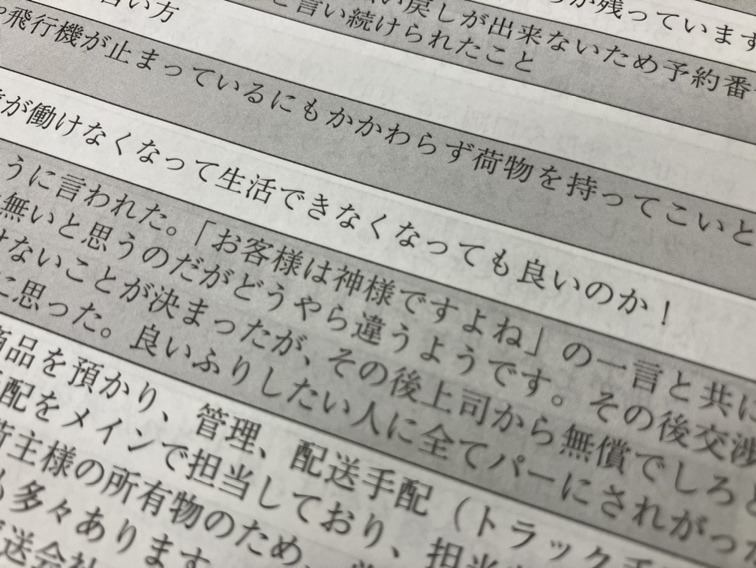 が残っています
い戻しが出来ないため予約番
言い方
と言い続けられたこと
飛行機が止まっているにもかかわらず荷物を持ってこいと
が働けなくなって生活できなくなっても良いのか！
うに言われた。「お客様は神様ですよね」の一言と共に
無いと思うのだがどうやら違うようです。その後交渉
ないことが決まったが、その後上司から無償でしろと
に思った。良いふりしたい人に全てパーにされがっか
商品を預かり、管理、配送手配（トラック手
配をメインで担当しており、担当
荷主様の所有物のため、
も多々あります。
送会社